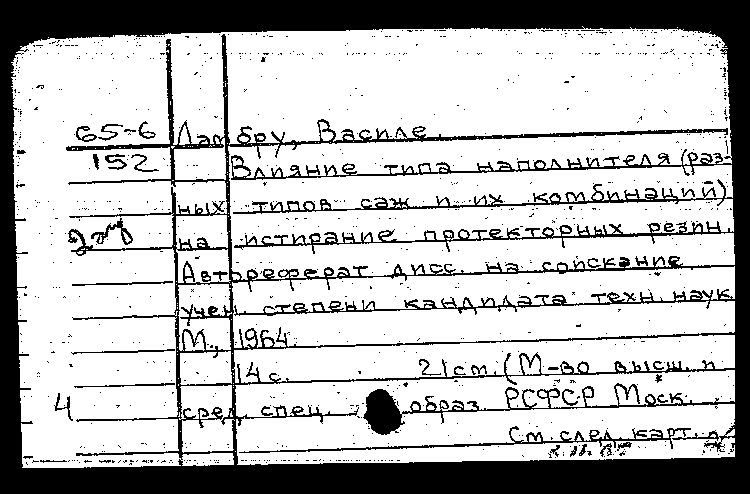 65-6 Ламбру, Василе.
152 Влияние типа наполнителя (раз-
ных типов саж и их комбинаций)
на истирание протекторных резин.
Автореферат дисс. на соискание
учен. степени кандидата техн. наук
М., 1964.
14 с. 21 см. (М-во высш. и
4 сред. спец. образ. РСФСР Моск.
См. след. карт.